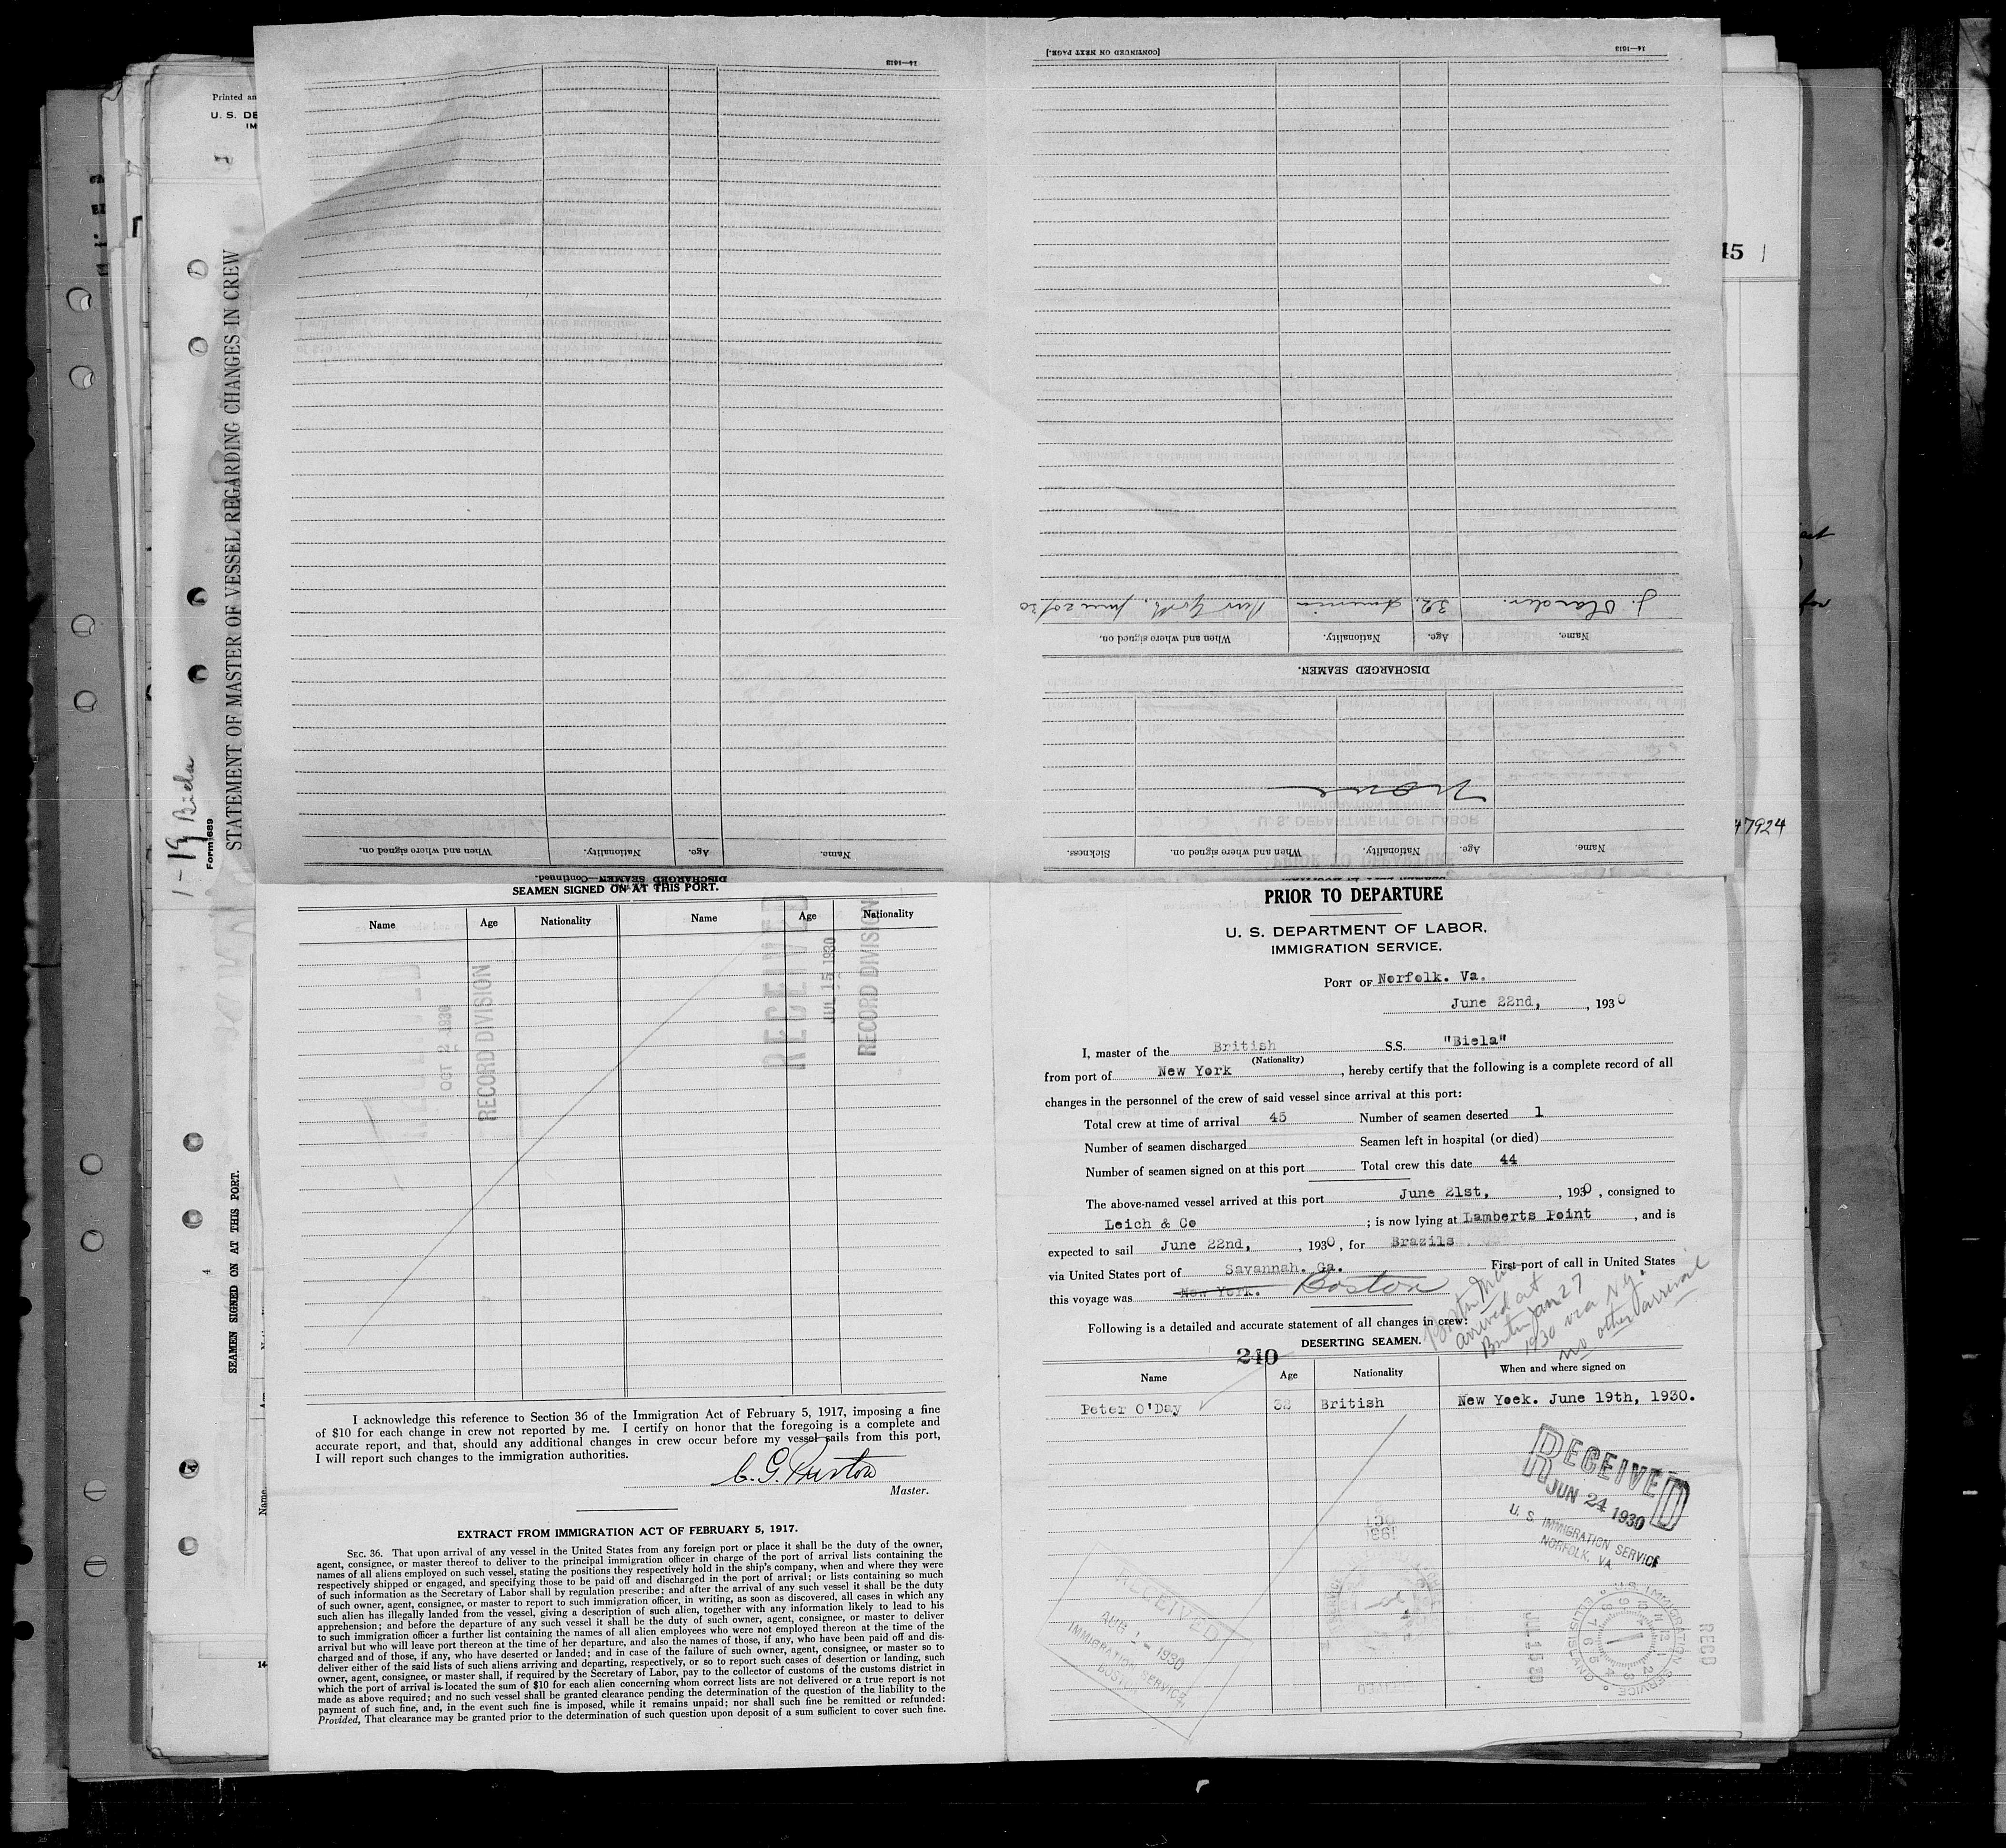 [CONTINUED ON NEXT PAGE.]
14—1613
14—1613
Printed an
U. S. DE
IM
STATEMENT OF MASTER OF VESSEL REGARDING CHANGES IN CREW
Form 689
1-19 Biela
SEAMEN SIGNED ON AT THIS PORT.
Name
14-
45
47924
J.
32.
New York, June 20/30
Name.
Age.
Nationality.
When and where signed on.
DISCHARGED SEAMEN.
None
Name.
Age.
Nationality.
When and where signed on.
Sickness.
Name.
Age.
Nationality.
When and where signed on.
DISCHARGED SEAMEN—Continued.
SEAMEN SIGNED ON AT THIS PORT.
Name Age Nationality Name Age Nationality
OCT 2 1930
RECORD DIVISION
RECEIVED
JUL 15 1930
RECORD DIVISION
I acknowledge this reference to Section 36 of the Immigration Act of February 5, 1917, imposing a fine
of $10 for each change in crew not reported by me. I certify on honor that the foregoing is a complete and
accurate report, and that, should any additional changes in crew occur before my vessel sails from this port,
I will report such changes to the immigration authorities.
Master.
EXTRACT FROM IMMIGRATION ACT OF FEBRUARY 5, 1917.
SEC. 36. That upon arrival of any vessel in the United States from any foreign port or place it shall be the duty of the owner,
agent, consignee, or master thereof to deliver to the principal immigration officer in charge of the port of arrival lists containing the
names of all aliens employed on such vessel, stating the positions they respectively hold in the ship's company, when and where they were
respectively shipped or engaged, and specifying those to be paid off and discharged in the port of arrival; or lists containing so much
of such information as the Secretary of Labor shall by regulation prescribe; and after the arrival of any such vessel it shall be the duty
of such owner, agent, consignee, or master to report to such immigration officer, in writing, as soon as discovered, all cases in which any
such alien has illegally landed from the vessel, giving a description of such alien, together with any information likely to lead to his
apprehension; and before the departure of any such vessel it shall be the duty of such owner, agent, consignee, or master to deliver
to such immigration officer a further list containing the names of all alien employees who were not employed thereon at the time of the
arrival but who will leave port thereon at the time of her departure, and also the names of those, if any, who have been paid off and dis-
charged and of those, if any, who have deserted or landed; and in case of the failure of such owner, agent, consignee, or master so to
deliver either of the said lists of such aliens arriving and departing, respectively, or so to report such cases of desertion or landing, such
owner, agent, consignee, or master shall, if required by the Secretary of Labor, pay to the collector of customs of the customs district in
which the port of arrival is located the sum of $10 for each alien concerning whom correct lists are not delivered or a true report is not
made as above required; and no such vessel shall be granted clearance pending the determination of the question of the liability to the
payment of such fine, and, in the event such fine is imposed, while it remains unpaid; nor shall such fine be remitted or refunded:
Provided, That clearance may be granted prior to the determination of such question upon deposit of a sum sufficient to cover such fine.
PRIOR TO DEPARTURE
U. S. DEPARTMENT OF LABOR,
IMMIGRATION SERVICE,
PORT OF Norfolk. Va.
June 22nd, , 1930
I, master of the British S.S. "Biela"
(Nationality)
from port of New York , hereby certify that the following is a complete record of all
changes in the personnel of the crew of said vessel since arrival at this port:
Total crew at time of arrival 45 Number of seamen deserted 1
Number of seamen discharged Seamen left in hospital (or died)
Number of seamen signed on at this port Total crew this date 44
The above-named vessel arrived at this port June 21st, , 1930 , consigned to
Leich & Co ; is now lying at Lamberts Point , and is
expected to sail June 22nd, , 1930 , for Brazils
via United States port of Savannah. Ga. First port of call in United States
this voyage was New York. Boston
arrived at
Jan 27
1930 via N.Y.
no other arrival
Following is a detailed and accurate statement of all changes in crew:
DESERTING SEAMEN.
240
Name Age Nationality When and where signed on
Peter O'Day 32 British New Yoek. June 19th, 1930.
RECEIVED
JUN 24 1930
U. S. IMMIGRATION SERVICE
NORFOLK, VA
RECEIVED
AUG 1 - 1930
IMMIGRATION SERVICE
U. S. IMMIGRATION SERVICE
ELLIS ISLAND
JUL 15 30
REC'D